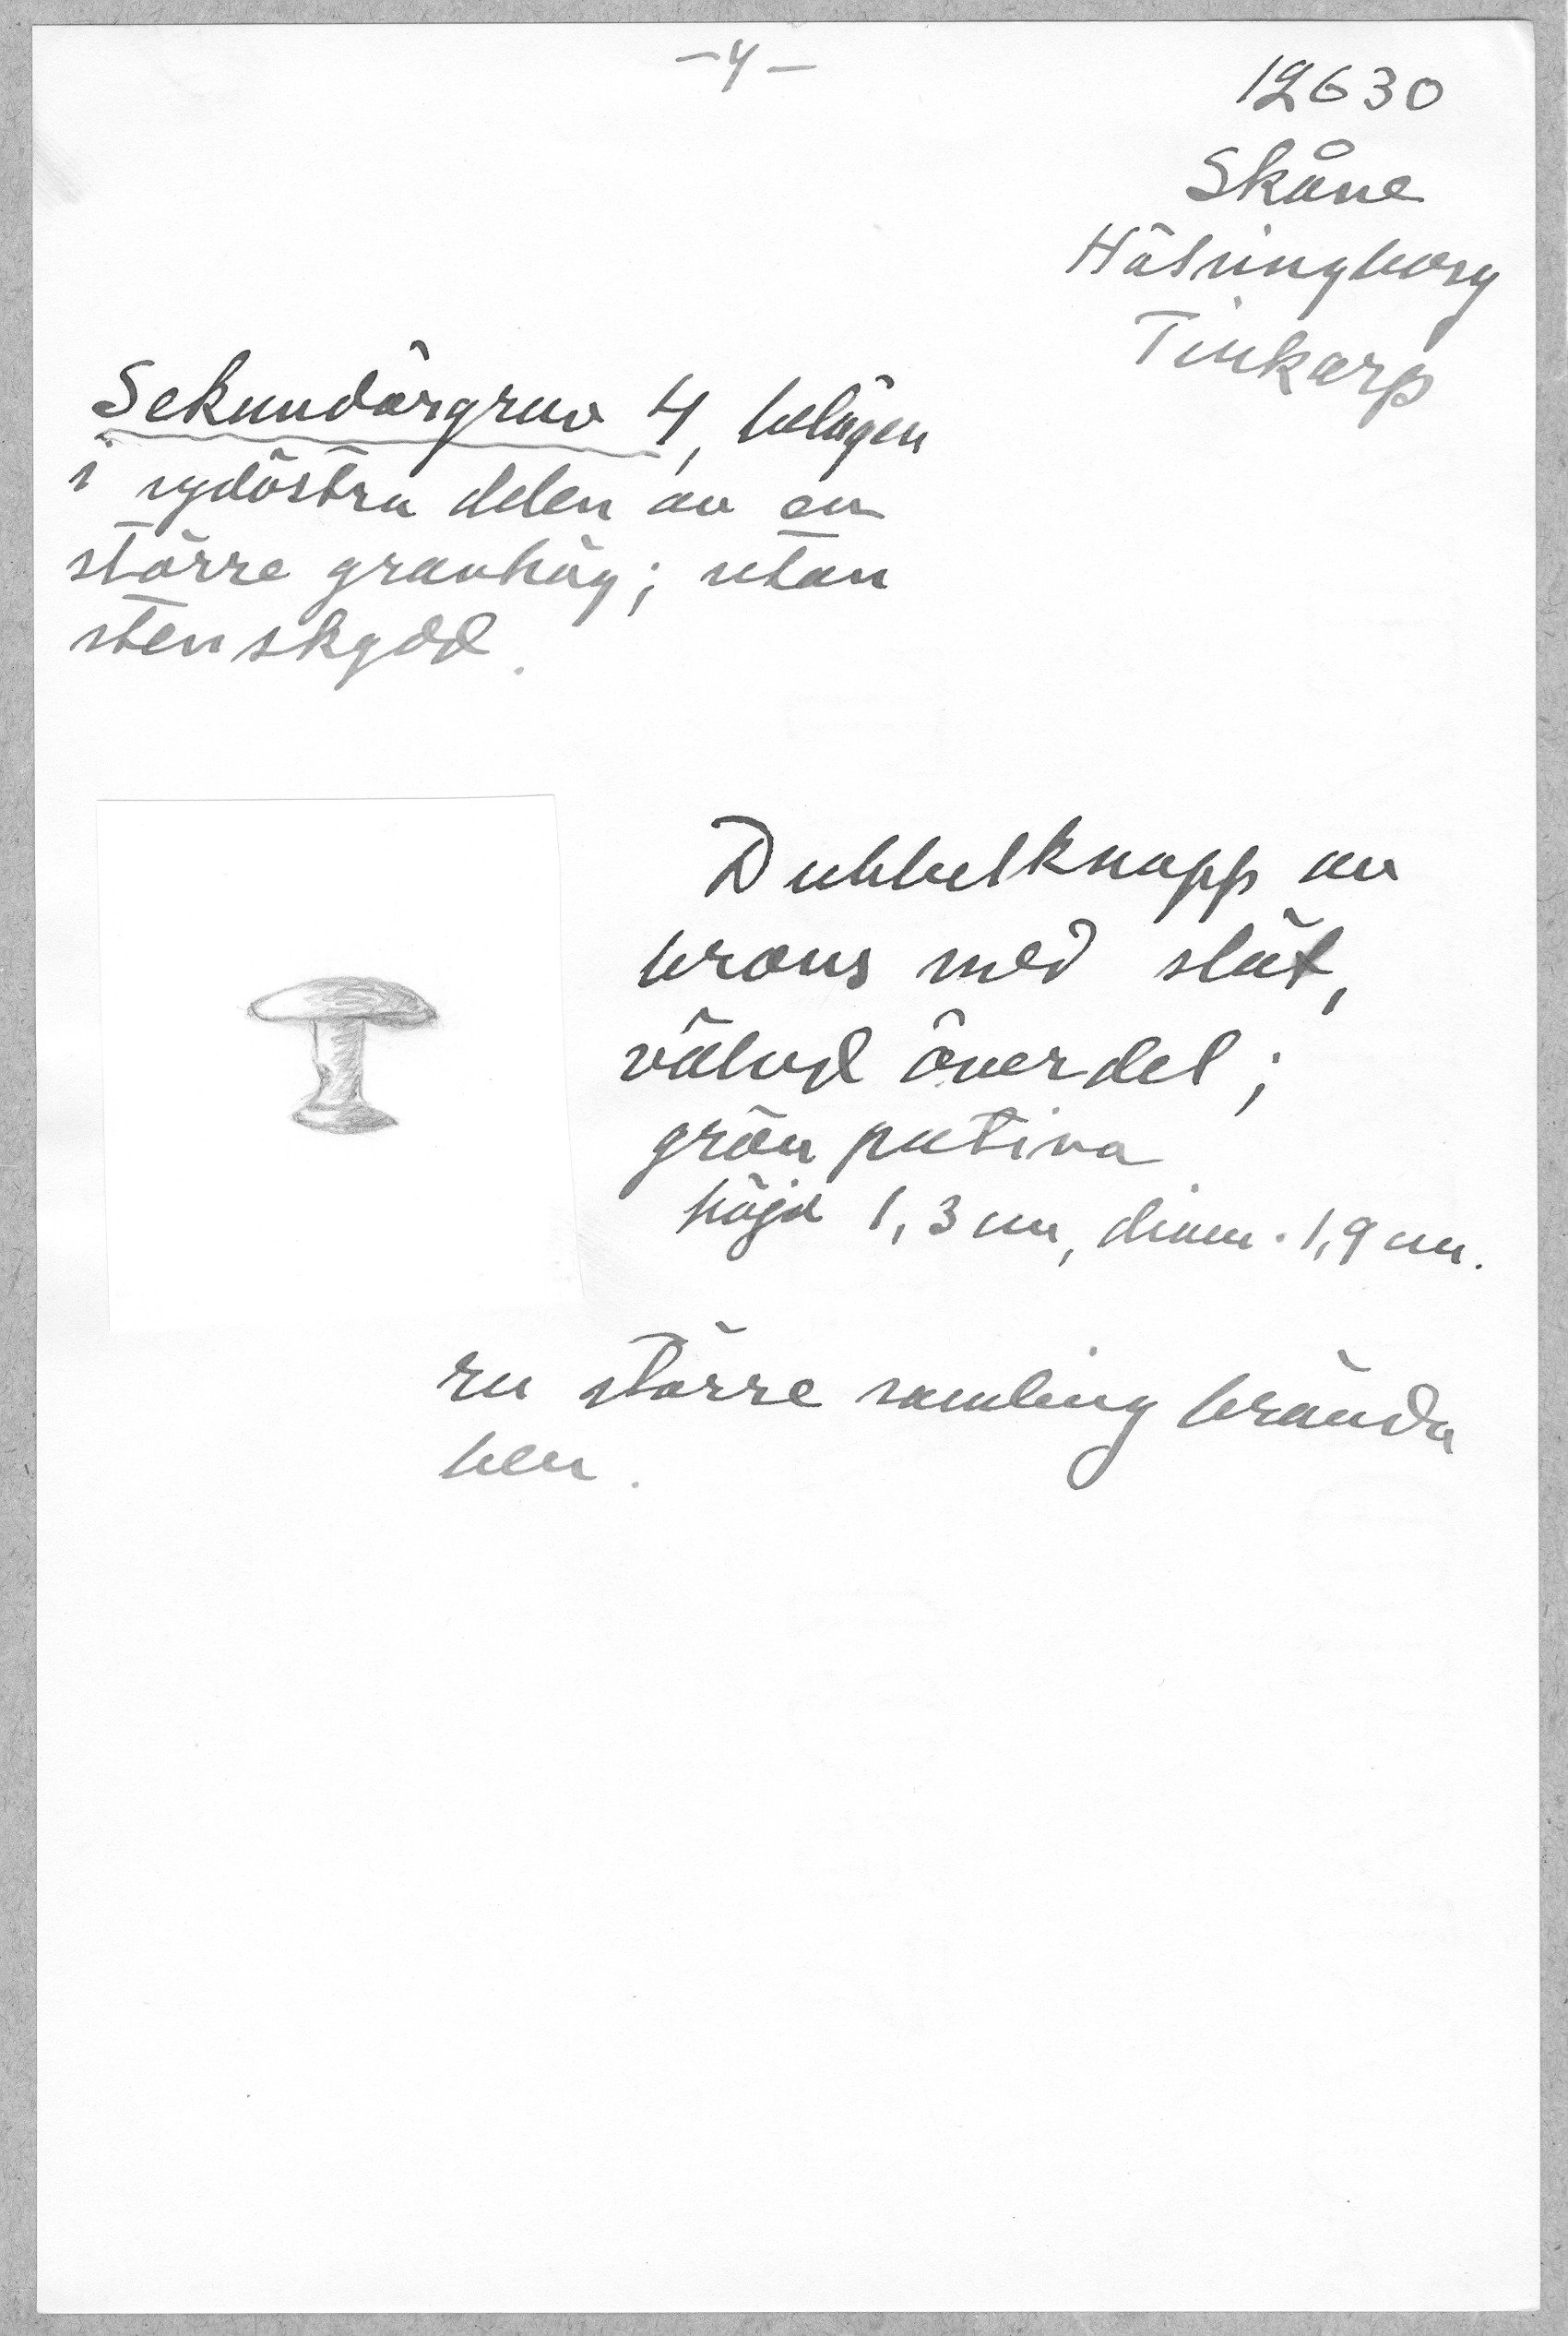 – 4 –
12630
Skåne
Hälsingborg
Tinkarp
Sekundärgrav 4, belägen
i sydöstra delen av en
större gravhög; utan
stenskydd.
Dubbelknapp av
brons med slät,
välvd överdel;
grön patina
höjd 1,3 cm, diam. 1,9 cm.
en större samling brända
ben.